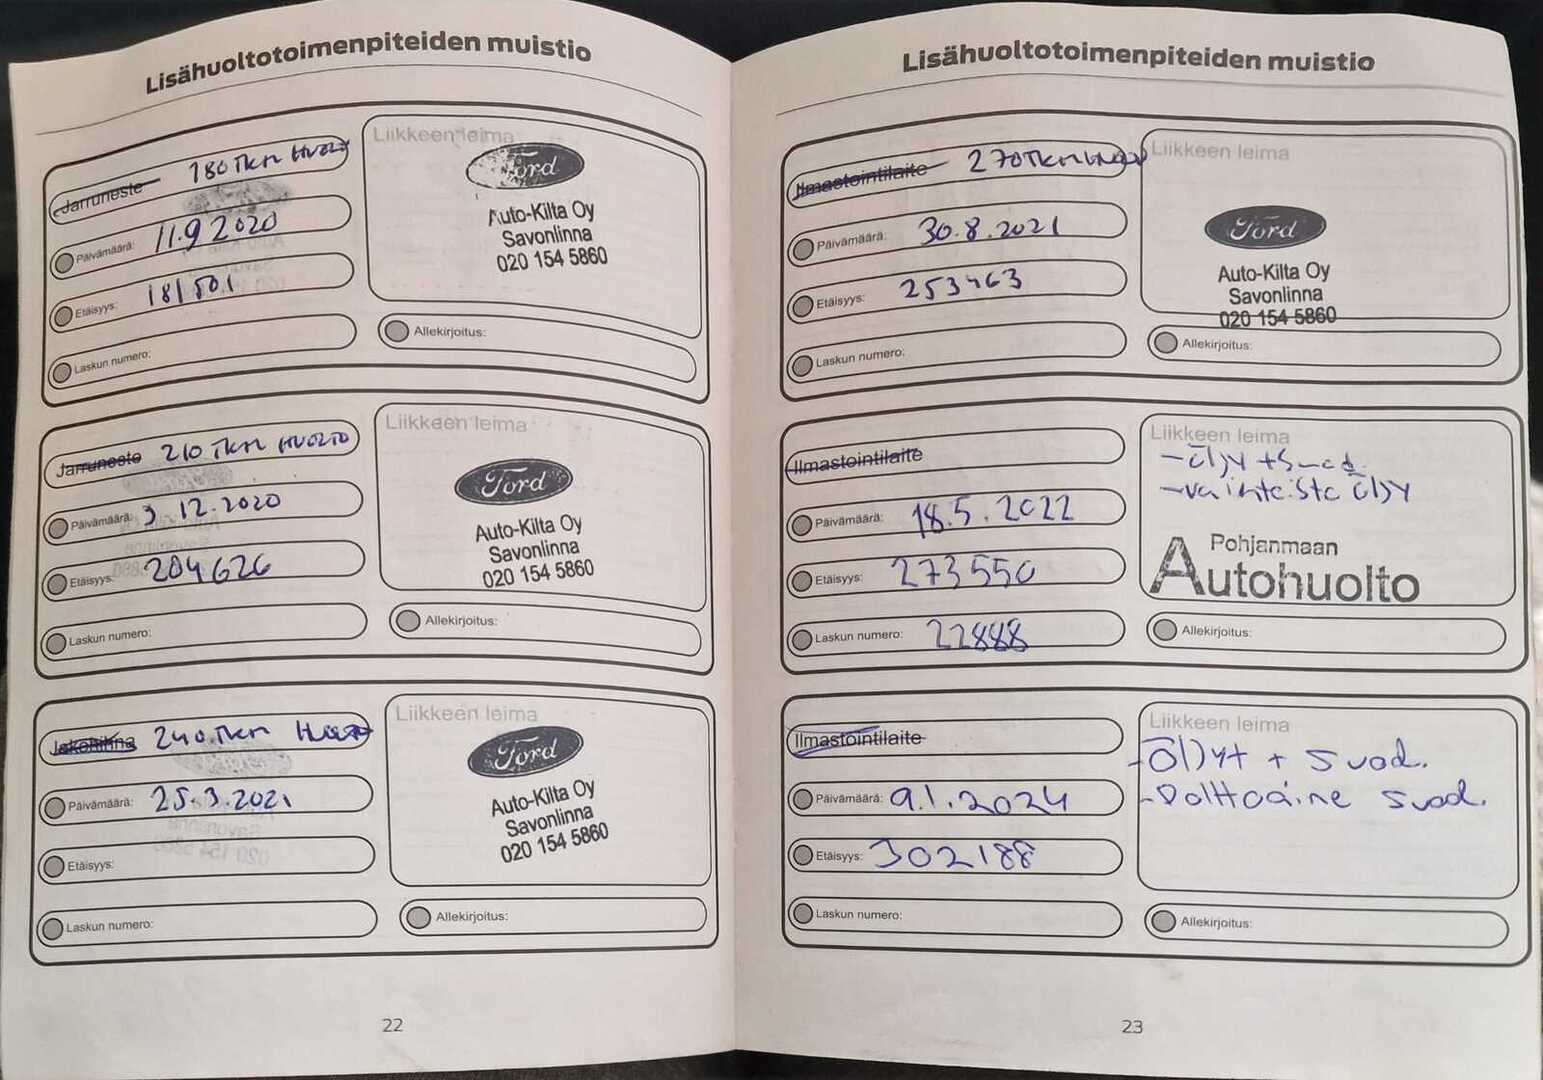 Lisähuoltotoimenpiteiden muistio
Jarruneste 180 TKM HUOLTO
Liikkeen leima
Ford
Auto-Kilta Oy
Savonlinna
020 154 5860
Päivämäärä: 11.9 2020
Etäisyys: 181501
Laskun numero:
Allekirjoitus:
Jarruneste 210 TKM HUOLTO
Liikkeen leima
Ford
Auto-Kilta Oy
Savonlinna
020 154 5860
Päivämäärä: 3 12.2020
Etäisyys: 204626
Laskun numero:
Allekirjoitus:
Jakohihna 240 TKM HUOLTO
Liikkeen leima
Ford
Auto-Kilta Oy
Savonlinna
020 154 5860
Päivämäärä: 25.3.2021
Etäisyys:
Laskun numero:
Allekirjoitus:
22
Lisähuoltotoimenpiteiden muistio
Ilmastointilaite 270 TKM
Liikkeen leima
Ford
Auto-Kilta Oy
Savonlinna
020 154 5860
Päivämäärä: 30.8.2021
Etäisyys: 253463
Laskun numero:
Allekirjoitus:
Ilmastointilaite
Liikkeen leima
-öljy + suod.
-vaihteisto öljy
Pohjanmaan
Autohuolto
Päivämäärä: 18.5.2022
Etäisyys: 273550
Laskun numero: 22888
Allekirjoitus:
Ilmastointilaite
Liikkeen leima
-öljyt + suod.
-Polttoaine suod.
Päivämäärä: 9.1.2024
Etäisyys: 302188
Laskun numero:
Allekirjoitus:
23